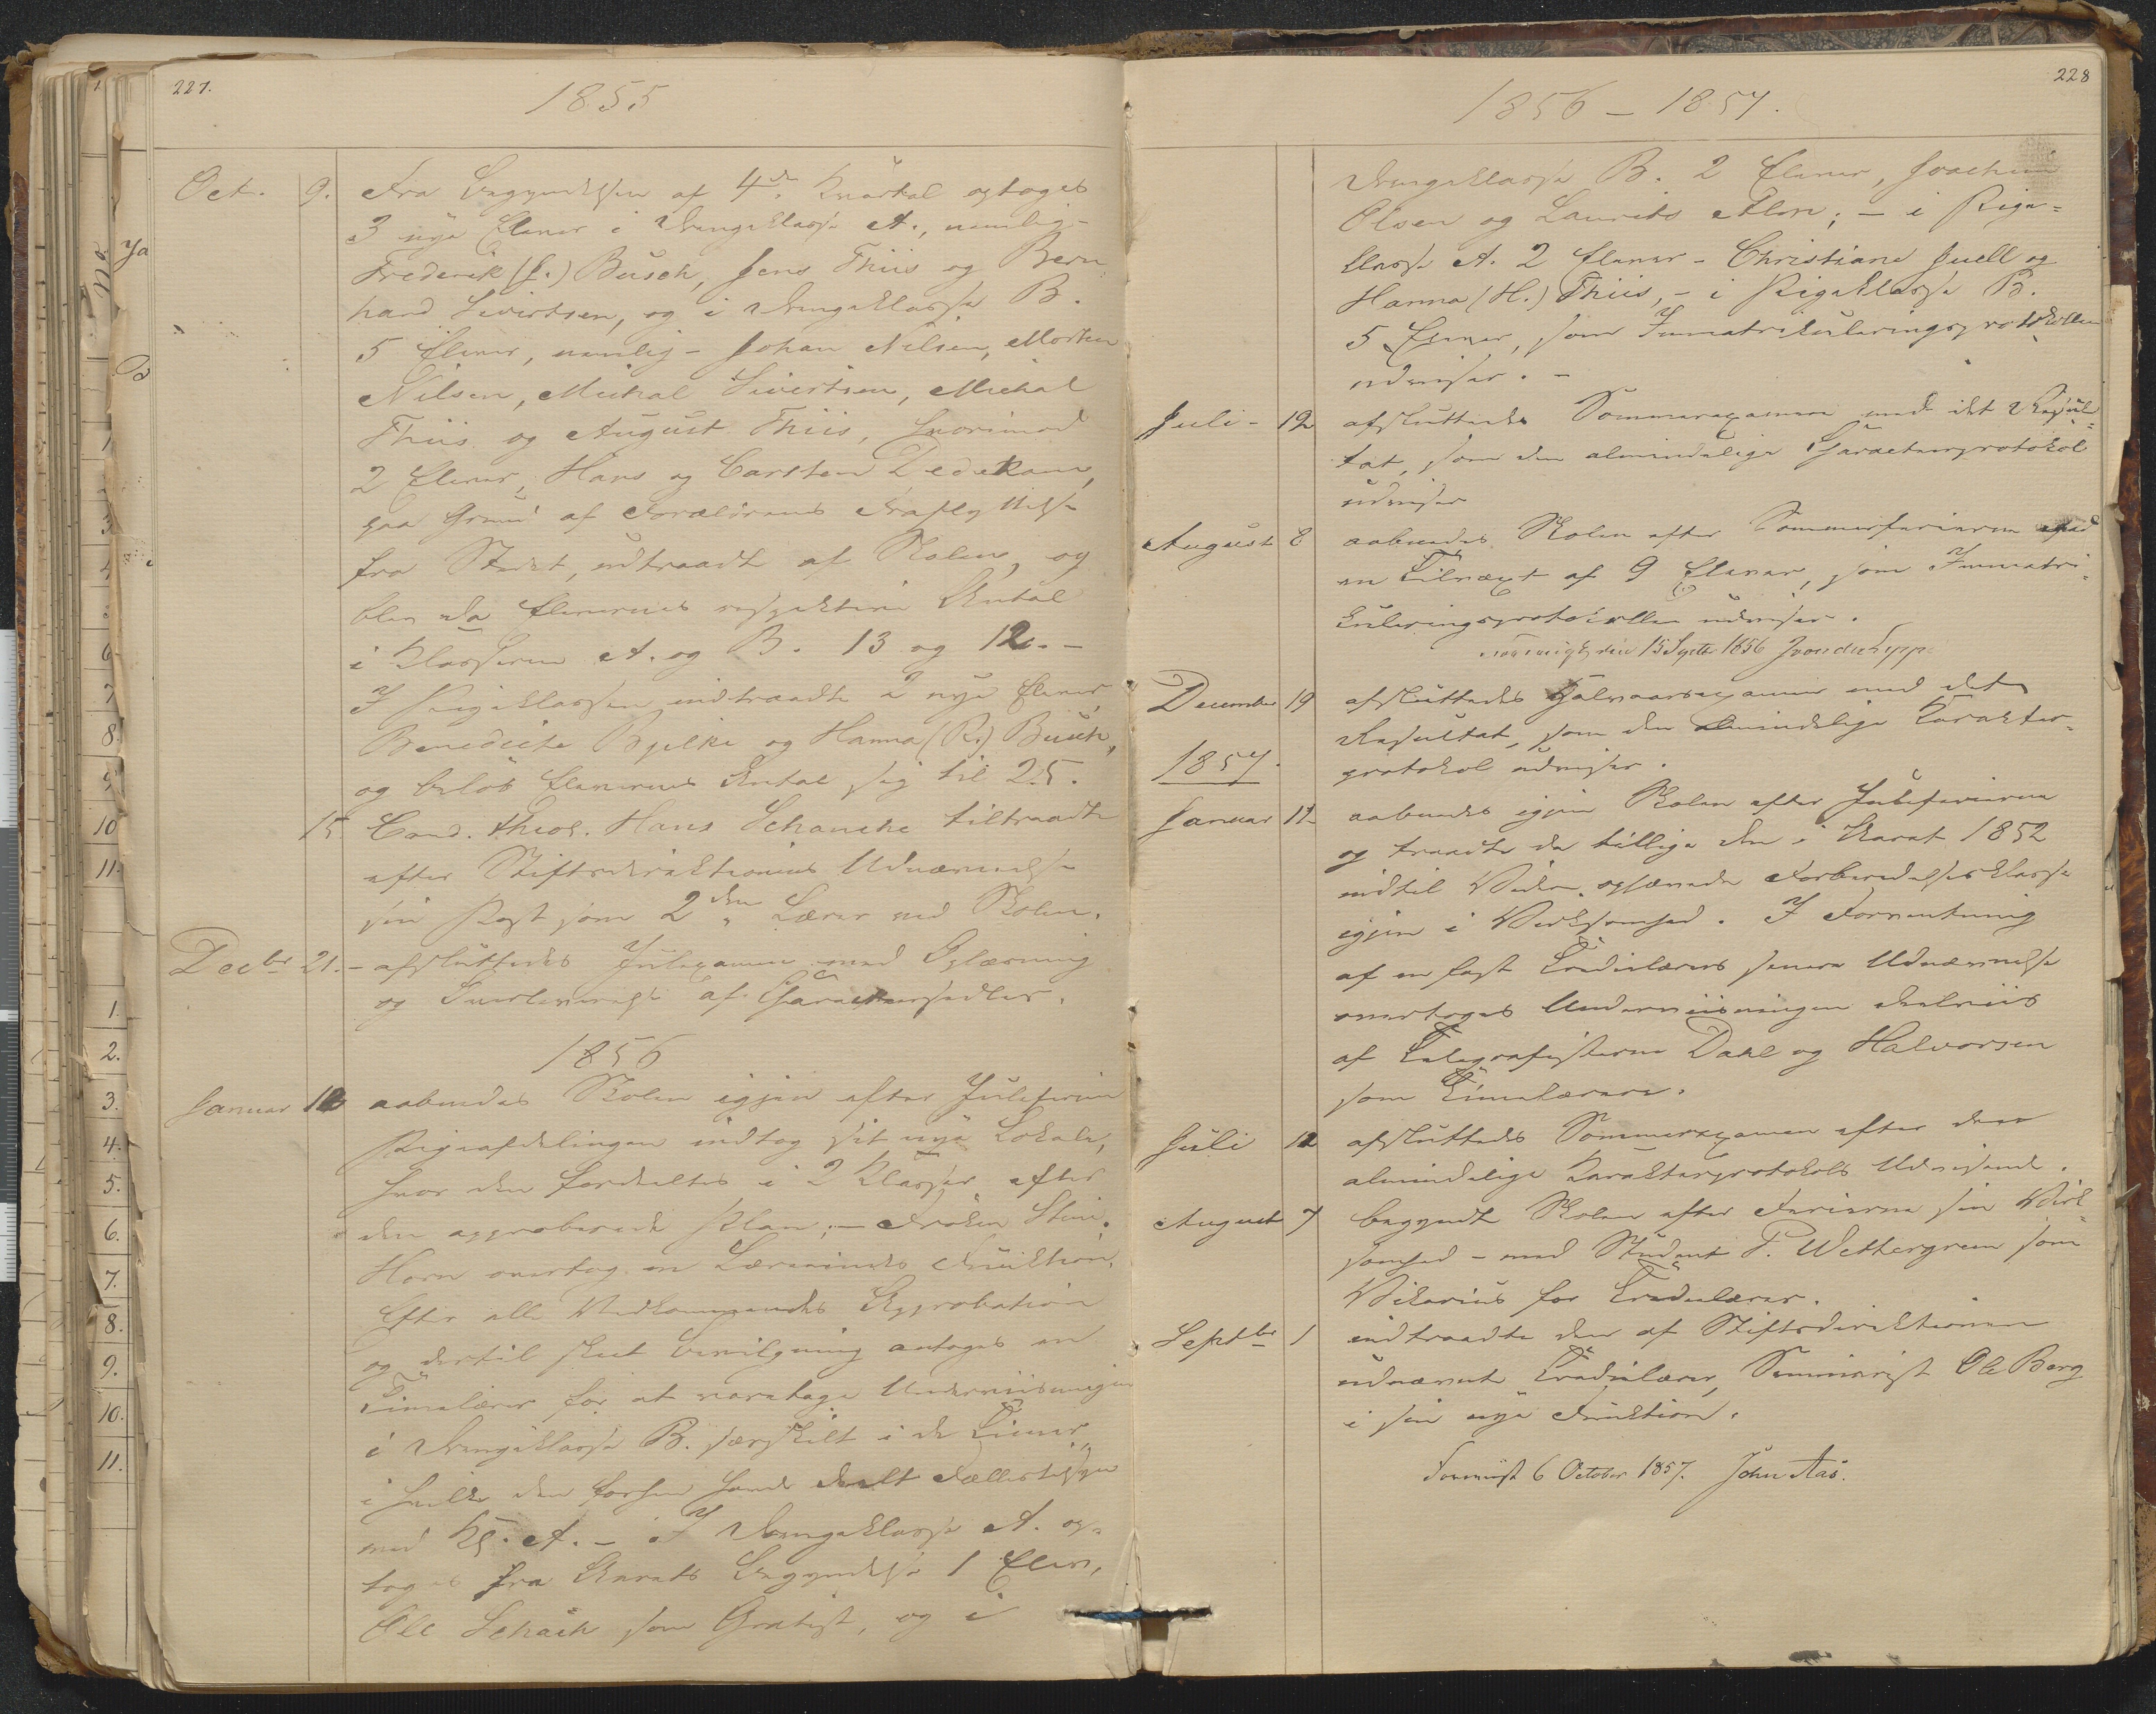 227.
1855
Oct. 9. Fra Begyndelsen af 4de Kvartal optoges
3 nye Elever i Drengeklasse A., nemlig -
Frederik (J.) Busch, Jens Thiis og Bern
hard Sivertsen, og i Drengeklasse B.
5 Elever, nemlig - Johan Nilsen, Morten
Nilsen, Michal Sivertsen, Michal
Thiis og August Thiis, hvorimod
2 Elever, Hans og Carsten Dedekam,
paa Grund af Forældrenes Fraflyttelse
fra Stedet, udtraadt af Skolen, og
blev da Elevernes respektive Antal
i Klasserne A. og B. 13 og 12. -
I Pigeklassen indtraadte 2 nye Elever,
Benedicte Bjelke og Hanna (R.) Busch,
og beløb Elevernes Antal sig til 25.
15 Cand. theol. Hans Schanche tiltraadte
efter Stiftsdirektionens Udnævnelse
sin Post som 2den Lærer ved Skolen.
Decbr 21. - afsluttedes Juleexamen med Oplæsning
og Overleverelse af Characteersedler.
1856
Januar 10 aabnedes Skolen igjen efter Juleferien
Pigeafdelingen indtog sit nye Lokale,
hvor den fordeeltes i 2 Klasser efter
den approberede Plan; - Frøken Stine
Horn overtog en Lærerindes Funktion.
Efter alle Vedkommendes Approbation
og dertil skeet Bevilgning antoges en
Timelærer for at varetage Underviisningen
i Drengeklasse B. særskilt i de Timer,
i hvilke den forhen havde deelt Fællesskab
med Kl. A. - I Drengeklasse A. op-
toges fra Aarets Begyndelse 1 Elev,
Ole Schach som Gratist, og i
228
1856 - 1857.
Drengeklasse B. 2 Elever, Joachim
Olsen og Laurits Alon; - i Pige=
klasse A. 2 Elever - Christiane Juell og
Hanna (H.) Thiis, - i Pigeklasse B.
5 Elever, som Immatrikuleringsprotokollen
udviser. -
Juli - 12 afsluttedes Sommerexamen med det Resul=
tat, som den almindelige Characteerprotokol
udviser
August 8 aabnedes Skolen efter Sommerferierne med
en Tilvæxt af 9 Elever, som Immatri=
kuleringsprotokollen udviser.
den 15 Septbr 1856
December 19 afsluttedes Halvaarsexamen med det
Resultat, som den almindelige Karakter=
protokol udviser.
1857.
Januar 11. aabnedes igjen Skolen efter Juleferierne
og traadte da tillige den i Aaret 1852
indtil Videre ophævede Forberedelsesklasse
igjen i Virksomhed. I Forventning
af en fast Tredielærers senere Udnævnelse
overtoges Underviisningen deelviis
af Telegrafisterne Dahl og Halvorsen
som Timelærere.
Juli 12 afsluttedes Sommerexamen efter den
almindelige Karakterprotokols Udvisende.
August 7 begyndte Skolen efter Ferierne sin Virk=
somhed - med Student P. Wettergreen som
Vikarius for Tredielærer.
Septbr 1 indtraadte den af Stiftsdirektionen
udnævnte Tredielærer, Seminarist Ole Berg
i sin nye Funktion.
6 October 1857. John Aas.